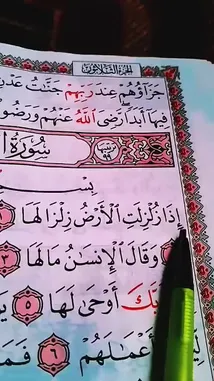 الجزء الثلاثون
جَزَاؤُهُمْ عِندَ رَبِّهِمْ جَنَّٰتُ عَدْنٍ
فِيهَا أَبَدًا رَّضِىَ ٱللَّهُ عَنْهُمْ وَرَضُو
سُورَةُ
بِسْمِ
إِذَا زُلْزِلَتِ ٱلْأَرْضُ زِلْزَالَهَا ١
وَقَالَ ٱلْإِنسَٰنُ مَا لَهَا ٣
بَّكَ أَوْحَىٰ لَهَا ٥
أَعْمَٰلَهُمْ ٦ فَمَ